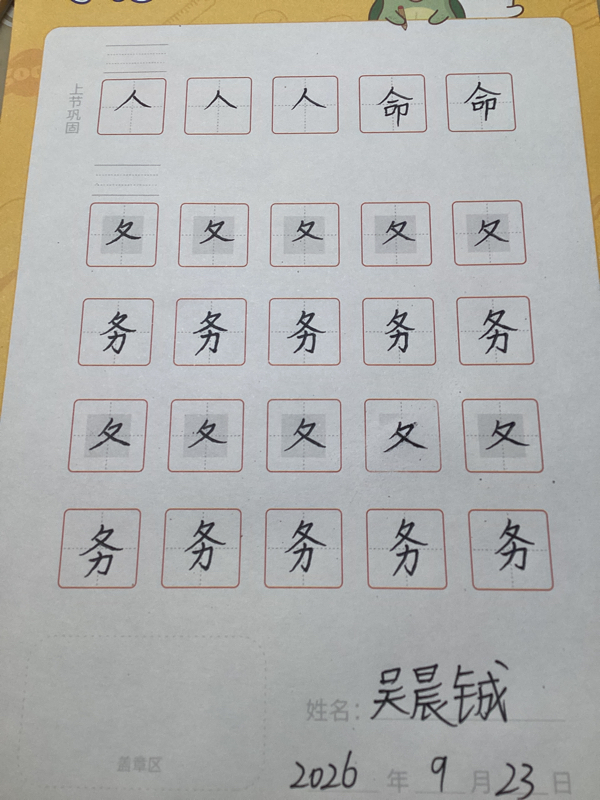 上节巩固
人 人 人 命 命
夂 夂 夂 夂 夂
务 务 务 务 务
夂 夂 夂 夂 夂
务 务 务 务 务
姓名：吴晨铖
盖章区
2026 年 9 月 23 日